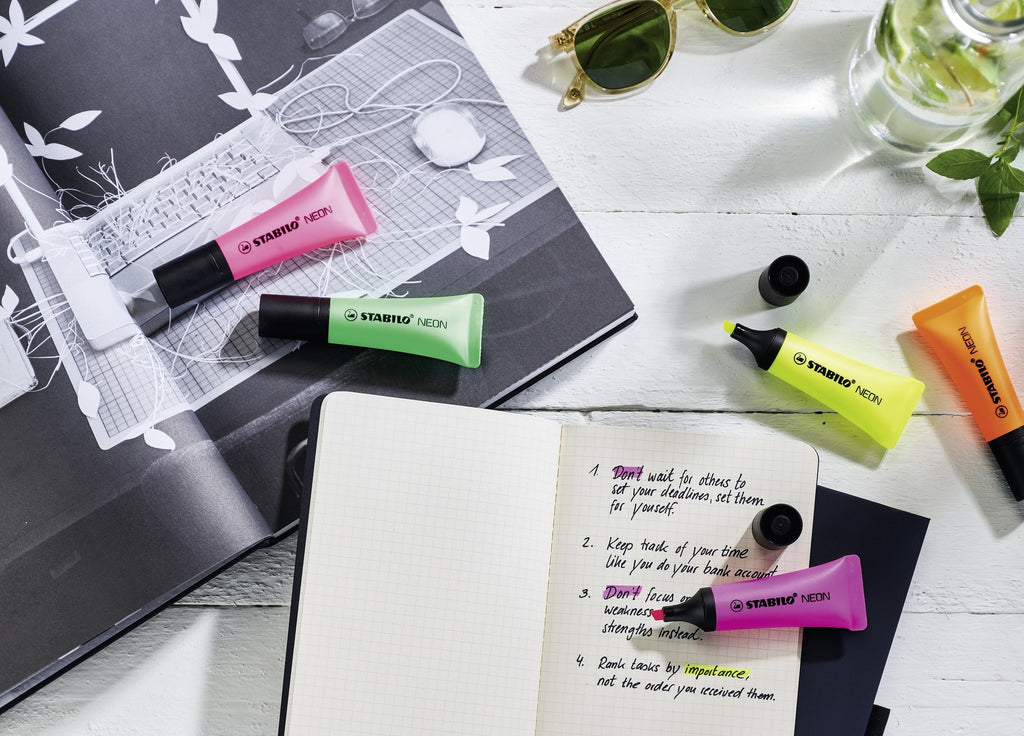 STABILO® NEON
STABILO® NEON
STABILO® NEON
STABILO® NEON
1. Don't wait for others to
set your deadlines, set them
for yourself.
2. Keep track of your time
like you do your bank account
3. Don't focus on
weakness
strengths instead.
STABILO® NEON
4. Rank tasks by importance,
not the order you received them.